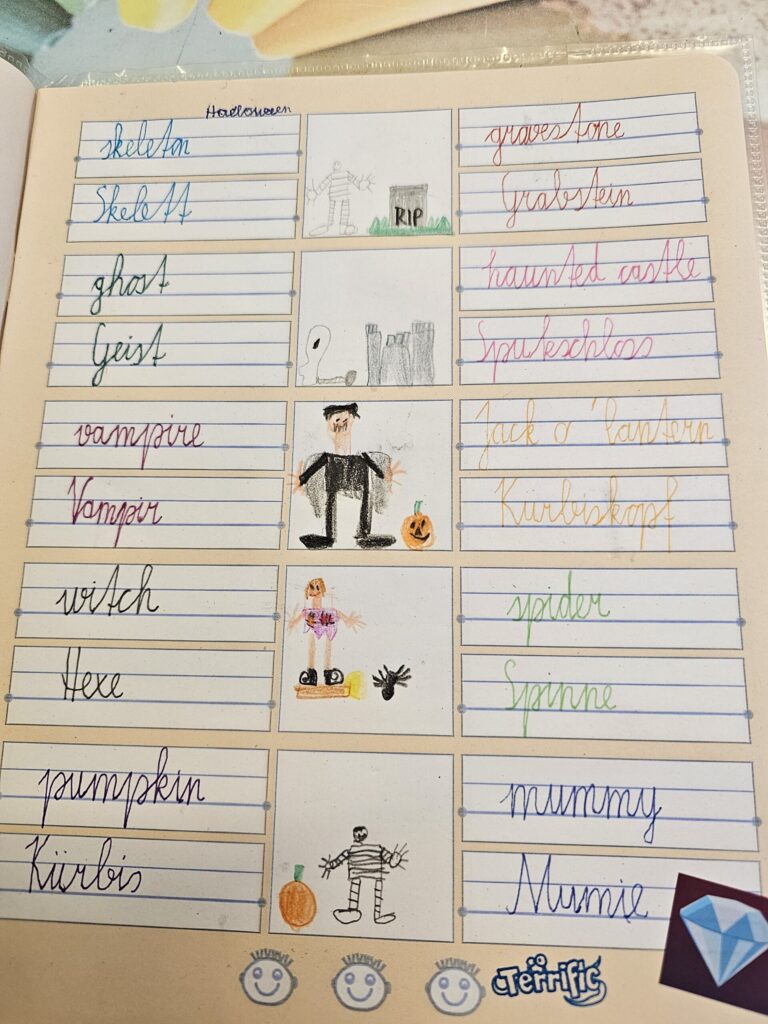 Halloween
skeleton
Skelett
RIP
gravestone
Grabstein
ghost
Geist
haunted castle
Spukschloss
vampire
Vampir
Jack o' lantern
Kürbiskopf
witch
Hexe
spider
Spinne
pumpkin
Kürbis
mummy
Mumie
Terrific